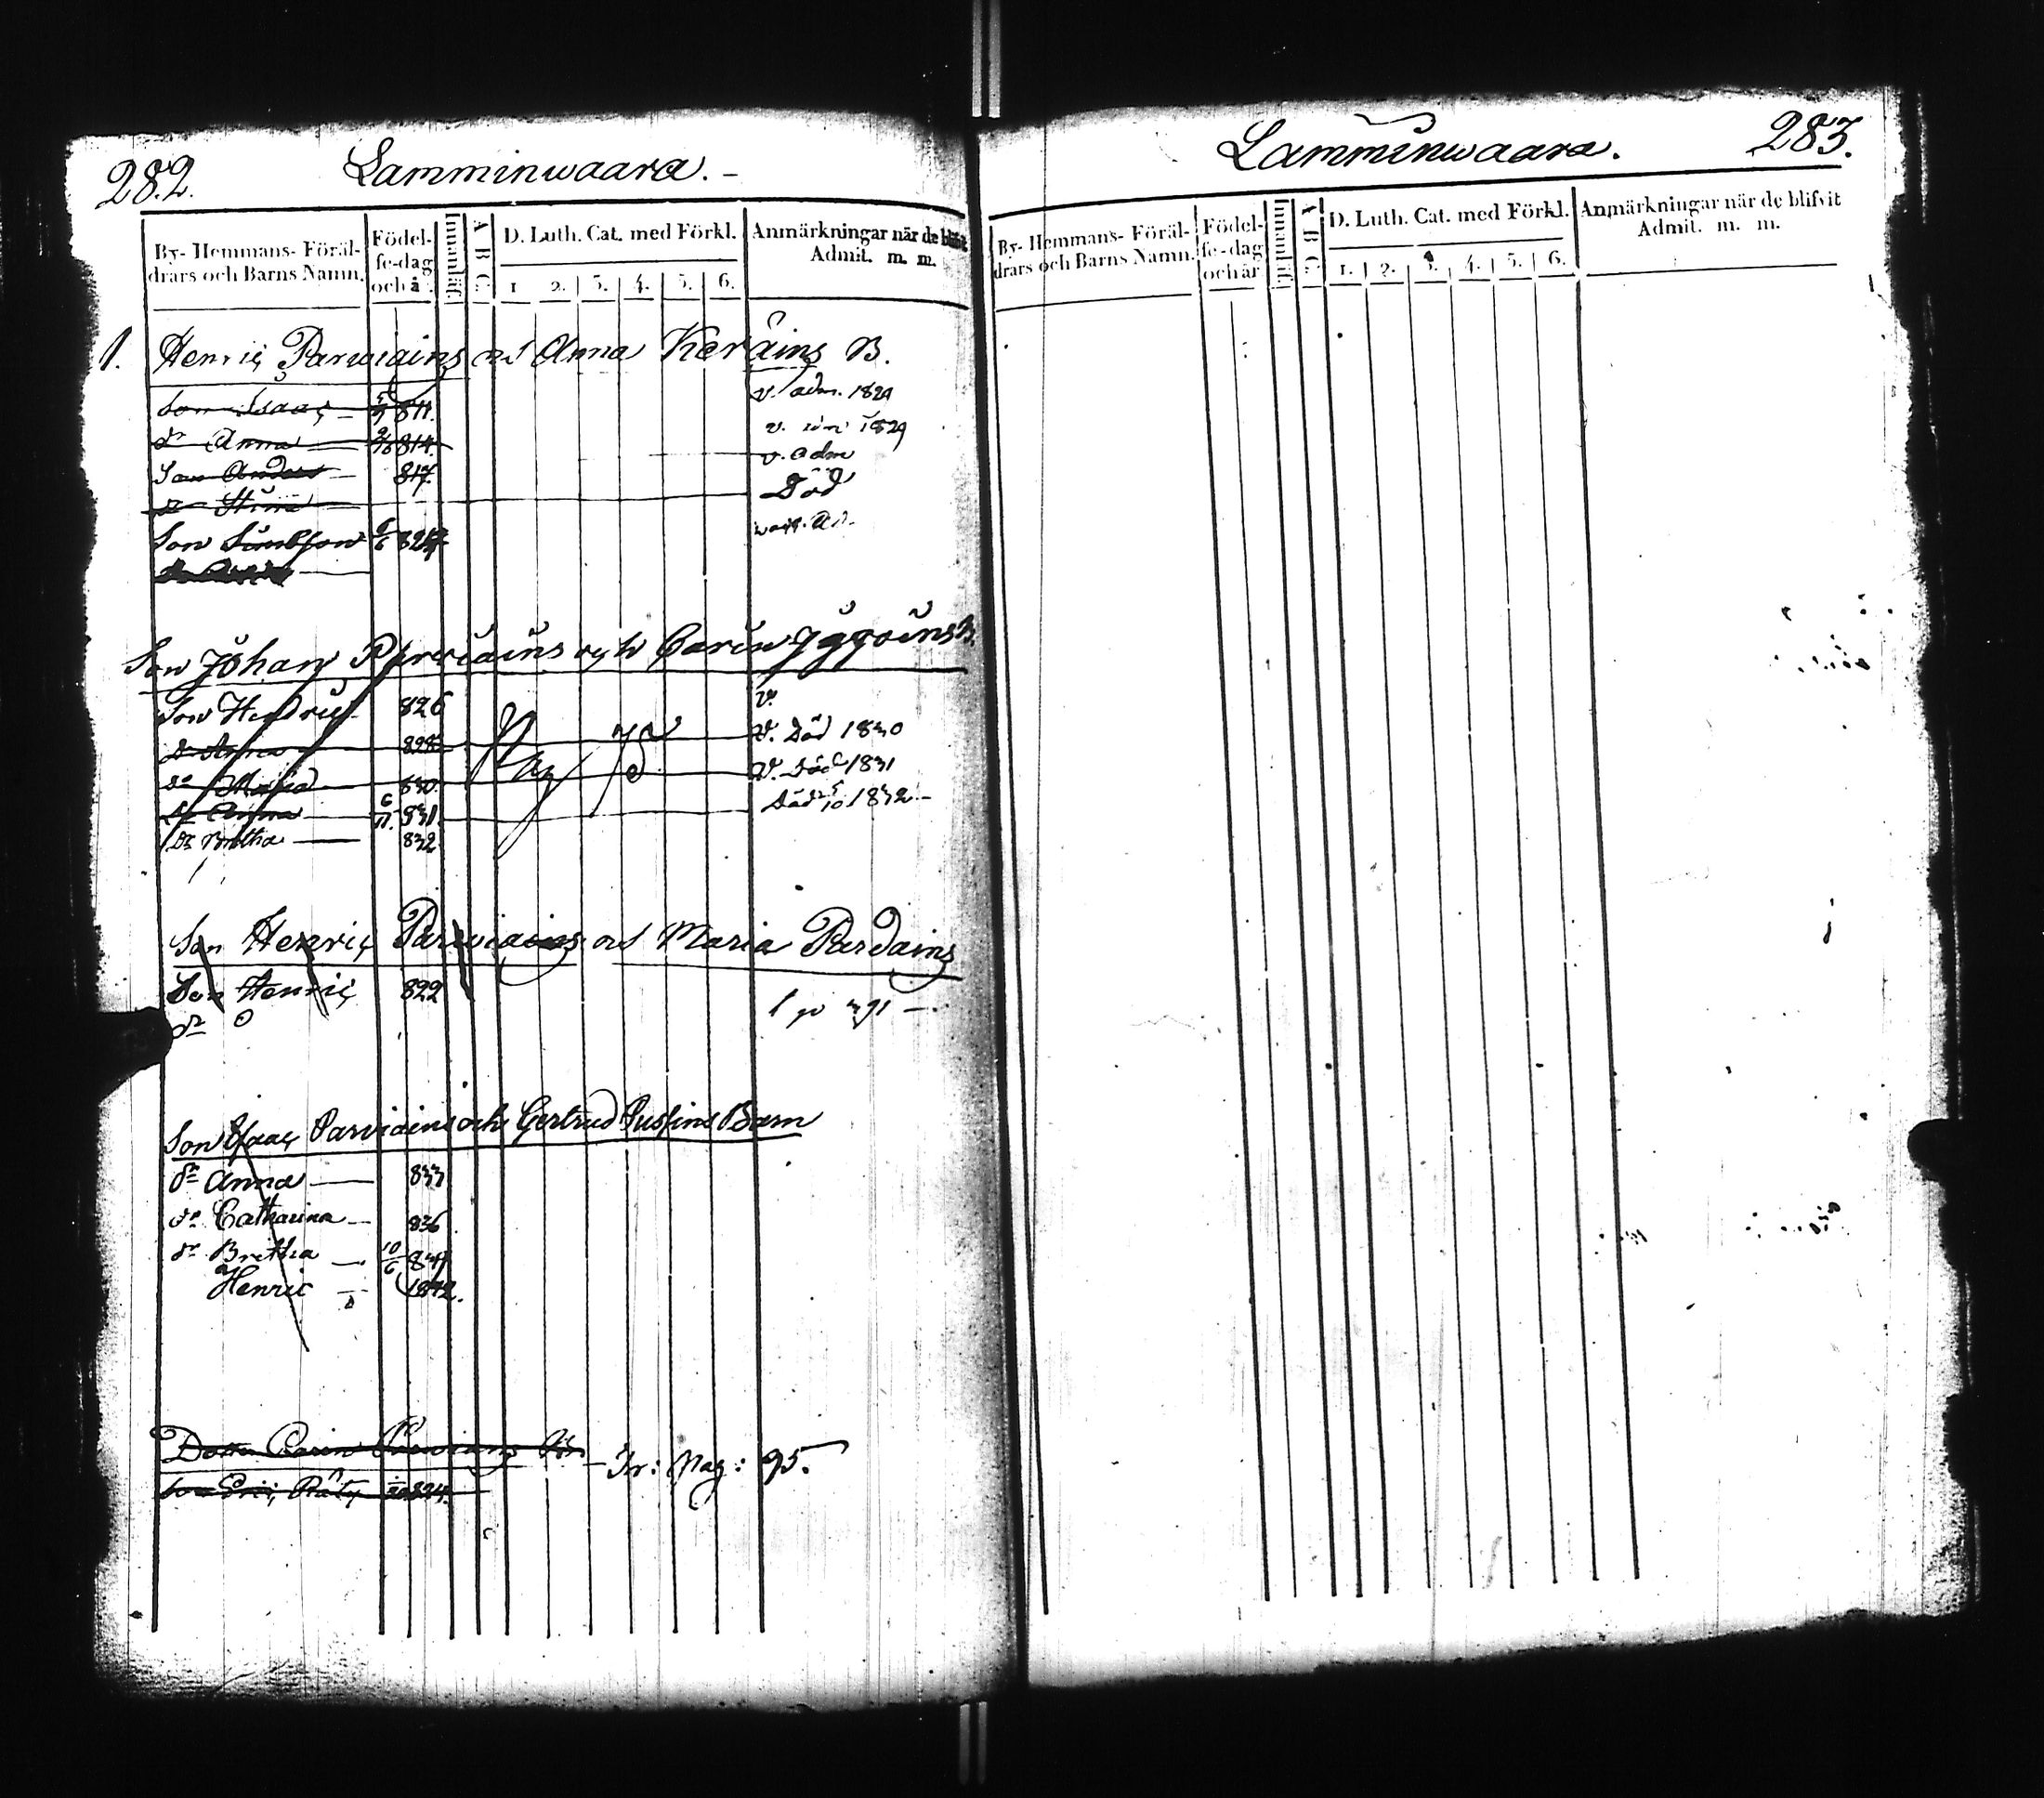 282.
Lamminwaara.
By- Hemmans- Föräl-
drars och Barns Namn.
Födel-
se-dag
och å .
Innanläs.
A B C.
D. Luth. Cat. med Förkl.
1 2. 3. 4. 5. 6.
Anmärkningar när de blifvit
Admit. m. m.
1. Henric Parwiains och Anna Keräins B.
Son Isaac 811. v. adm. 1829
dr Anna 814. v. adm 1829
Son Anders 817. v. adm
dr Stina Död
Son 6/6
Son Johan Parviains och Carin B.
Son Hendric 826 v.
dr Anna 828 V. Död 1830
dr Maria 830 V. Död 1831
dr Anna 6/11. 831. Död 1832
Dr Britha 832
Pag 75
Son Henric Parwiains och Maria Pardains
Son Henric 822
dr
Son Isaac Parviains och Gertrud Pussins Barn
dr Anna 833
dr Catharina 836
dr Bretha 10/6 839
Henric 1842.
Dotter Carin Parwiains
Son Eric Räty 824.
Tr: Pag: 95.
Lamminwaara.
283.
By- Hemmans- Föräl-
drars och Barns Namn.
Födel-
se-dag
och år
Innanläs.
A B C.
D. Luth. Cat. med Förkl.
1. 2. 3. 4. 5. 6.
Anmärkningar när de blifvit
Admit. m. m.